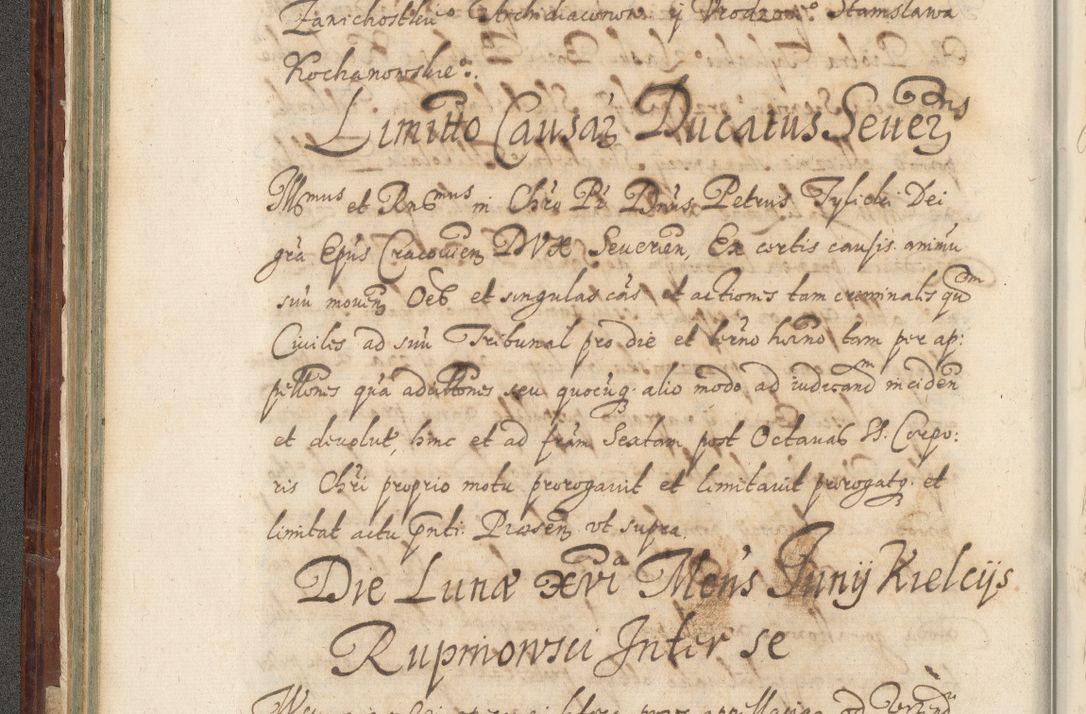 Zawichostkie° Archidiaconowi y Vrodzone° Stanisława
Kochanowskie°.
Limitto Causaꝝ Ducatus Seueꝝns
Illmus et Rndmus in Chro Pr Dnus Petrus Tylicki Dei
gra Epus Cracouien DVX Severien, Ex certis causis animu
suu mouen Oes et singulas cas et actiones tam criminales qm
Ciuiles ad suu Tribunal pro die et
tam per ap:
pellones qua
seu quocuq alio modo ad iudicand inciden
et deuolut, hinc et ad
post Octauas SS. Corpo:
ris Chri proprio motu prorogauit et limitauit prorogatq et
limitat actu pnti. Praesen vt supra.
Die Lunæ xvia Mens Junij Kielcijs
Rupniowsci Inter se